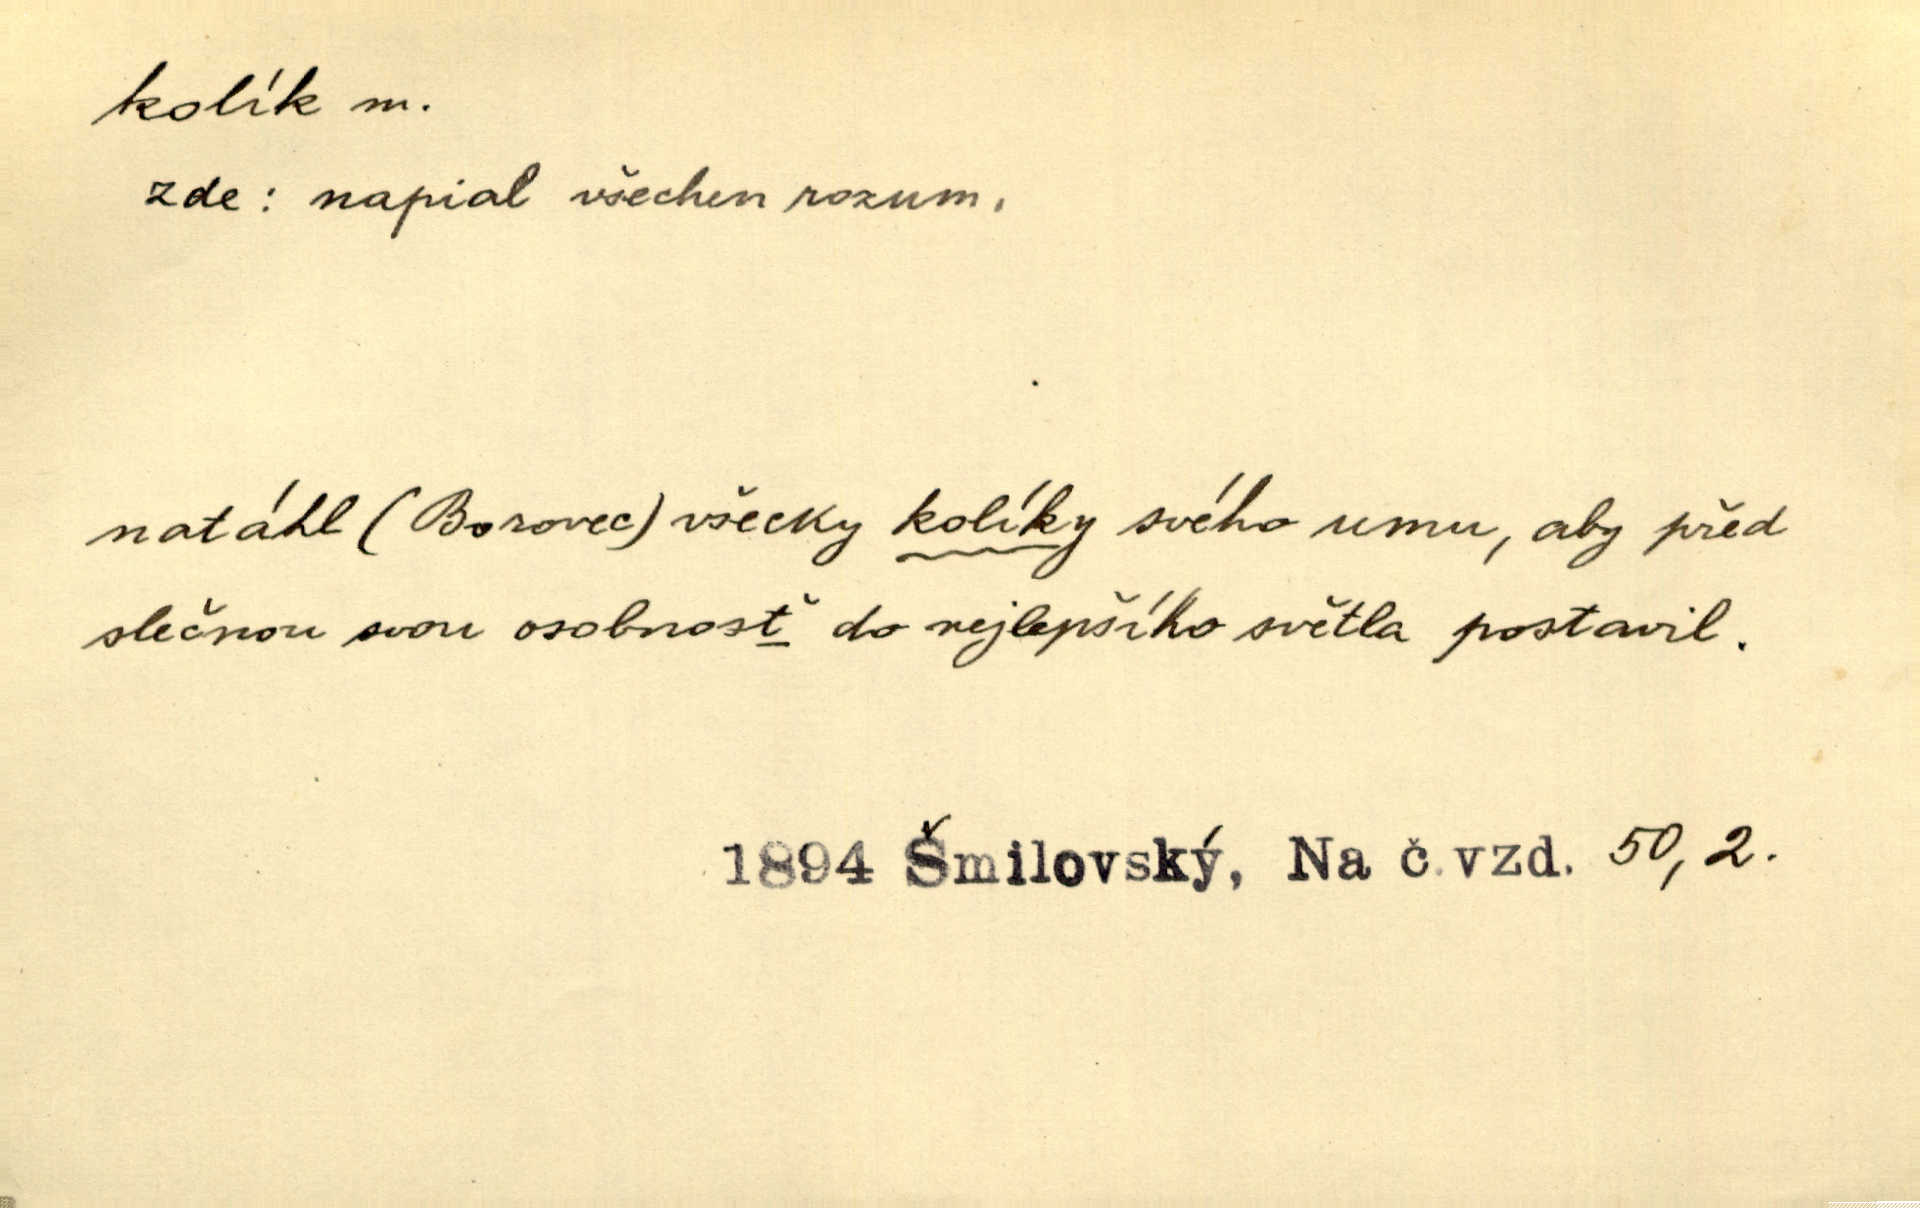 kolík m.
zde: napial všechen rozum.
natáhl (Borovec) všecky kolíky svého umu, aby před
slečnou svou osobnosť do nejlepšího světla postavil.
1894 Šmilovský, Na č.vzd. 50, 2.